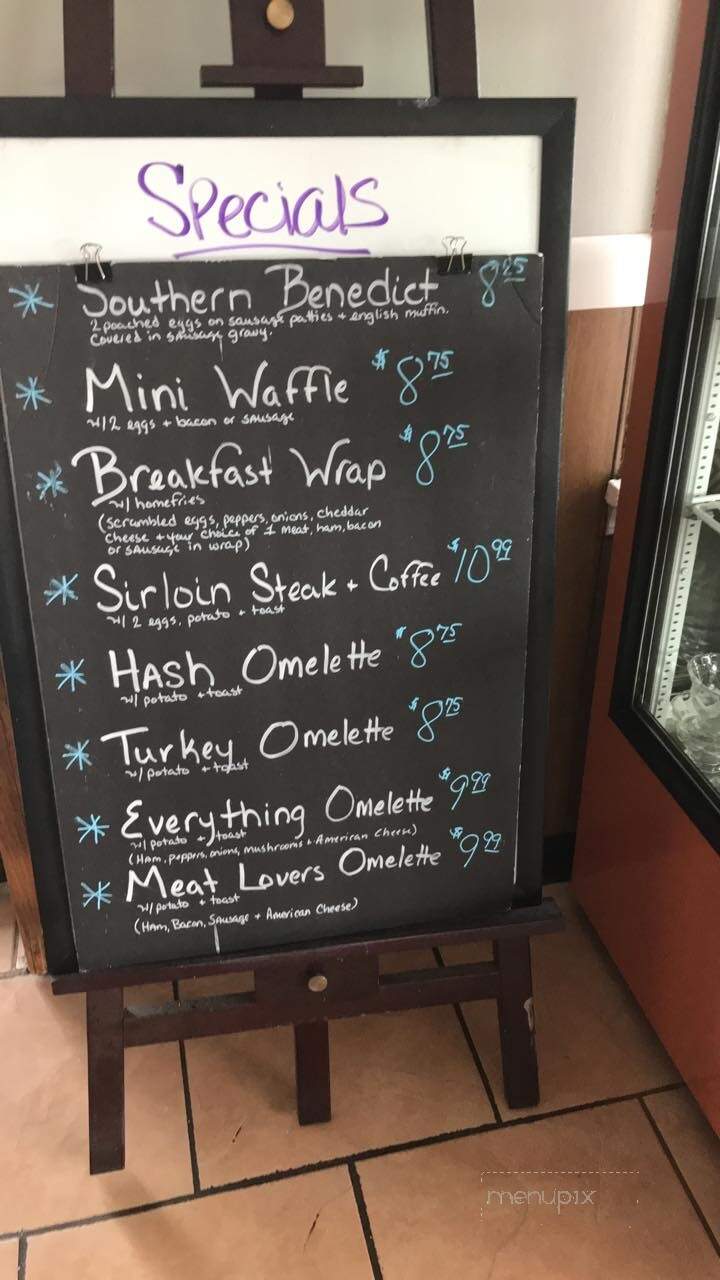 Specials
* Southern Benedict 8 25
2 poached eggs on sausage patties + english muffin.
Covered in sausage gravy.
* Mini Waffle $8 75
w/ 2 eggs + bacon or sausage
* Breakfast Wrap $8 75
w/ homefries
(scrambled eggs, peppers, onions, cheddar
cheese + your choice of 1 meat, ham, bacon
or sausage in wrap)
* Sirloin Steak + Coffee $10 99
w/ 2 eggs, potato + toast
* Hash Omelette $8 75
w/ potato + toast
* Turkey Omelette $8 75
w/ potato + toast
* Everything Omelette $9 99
w/ potato + toast
(Ham, peppers, onions, mushrooms + American Cheese)
* Meat Lovers Omelette $9 99
w/ potato + toast
(Ham, Bacon, Sausage + American Cheese)
menupix